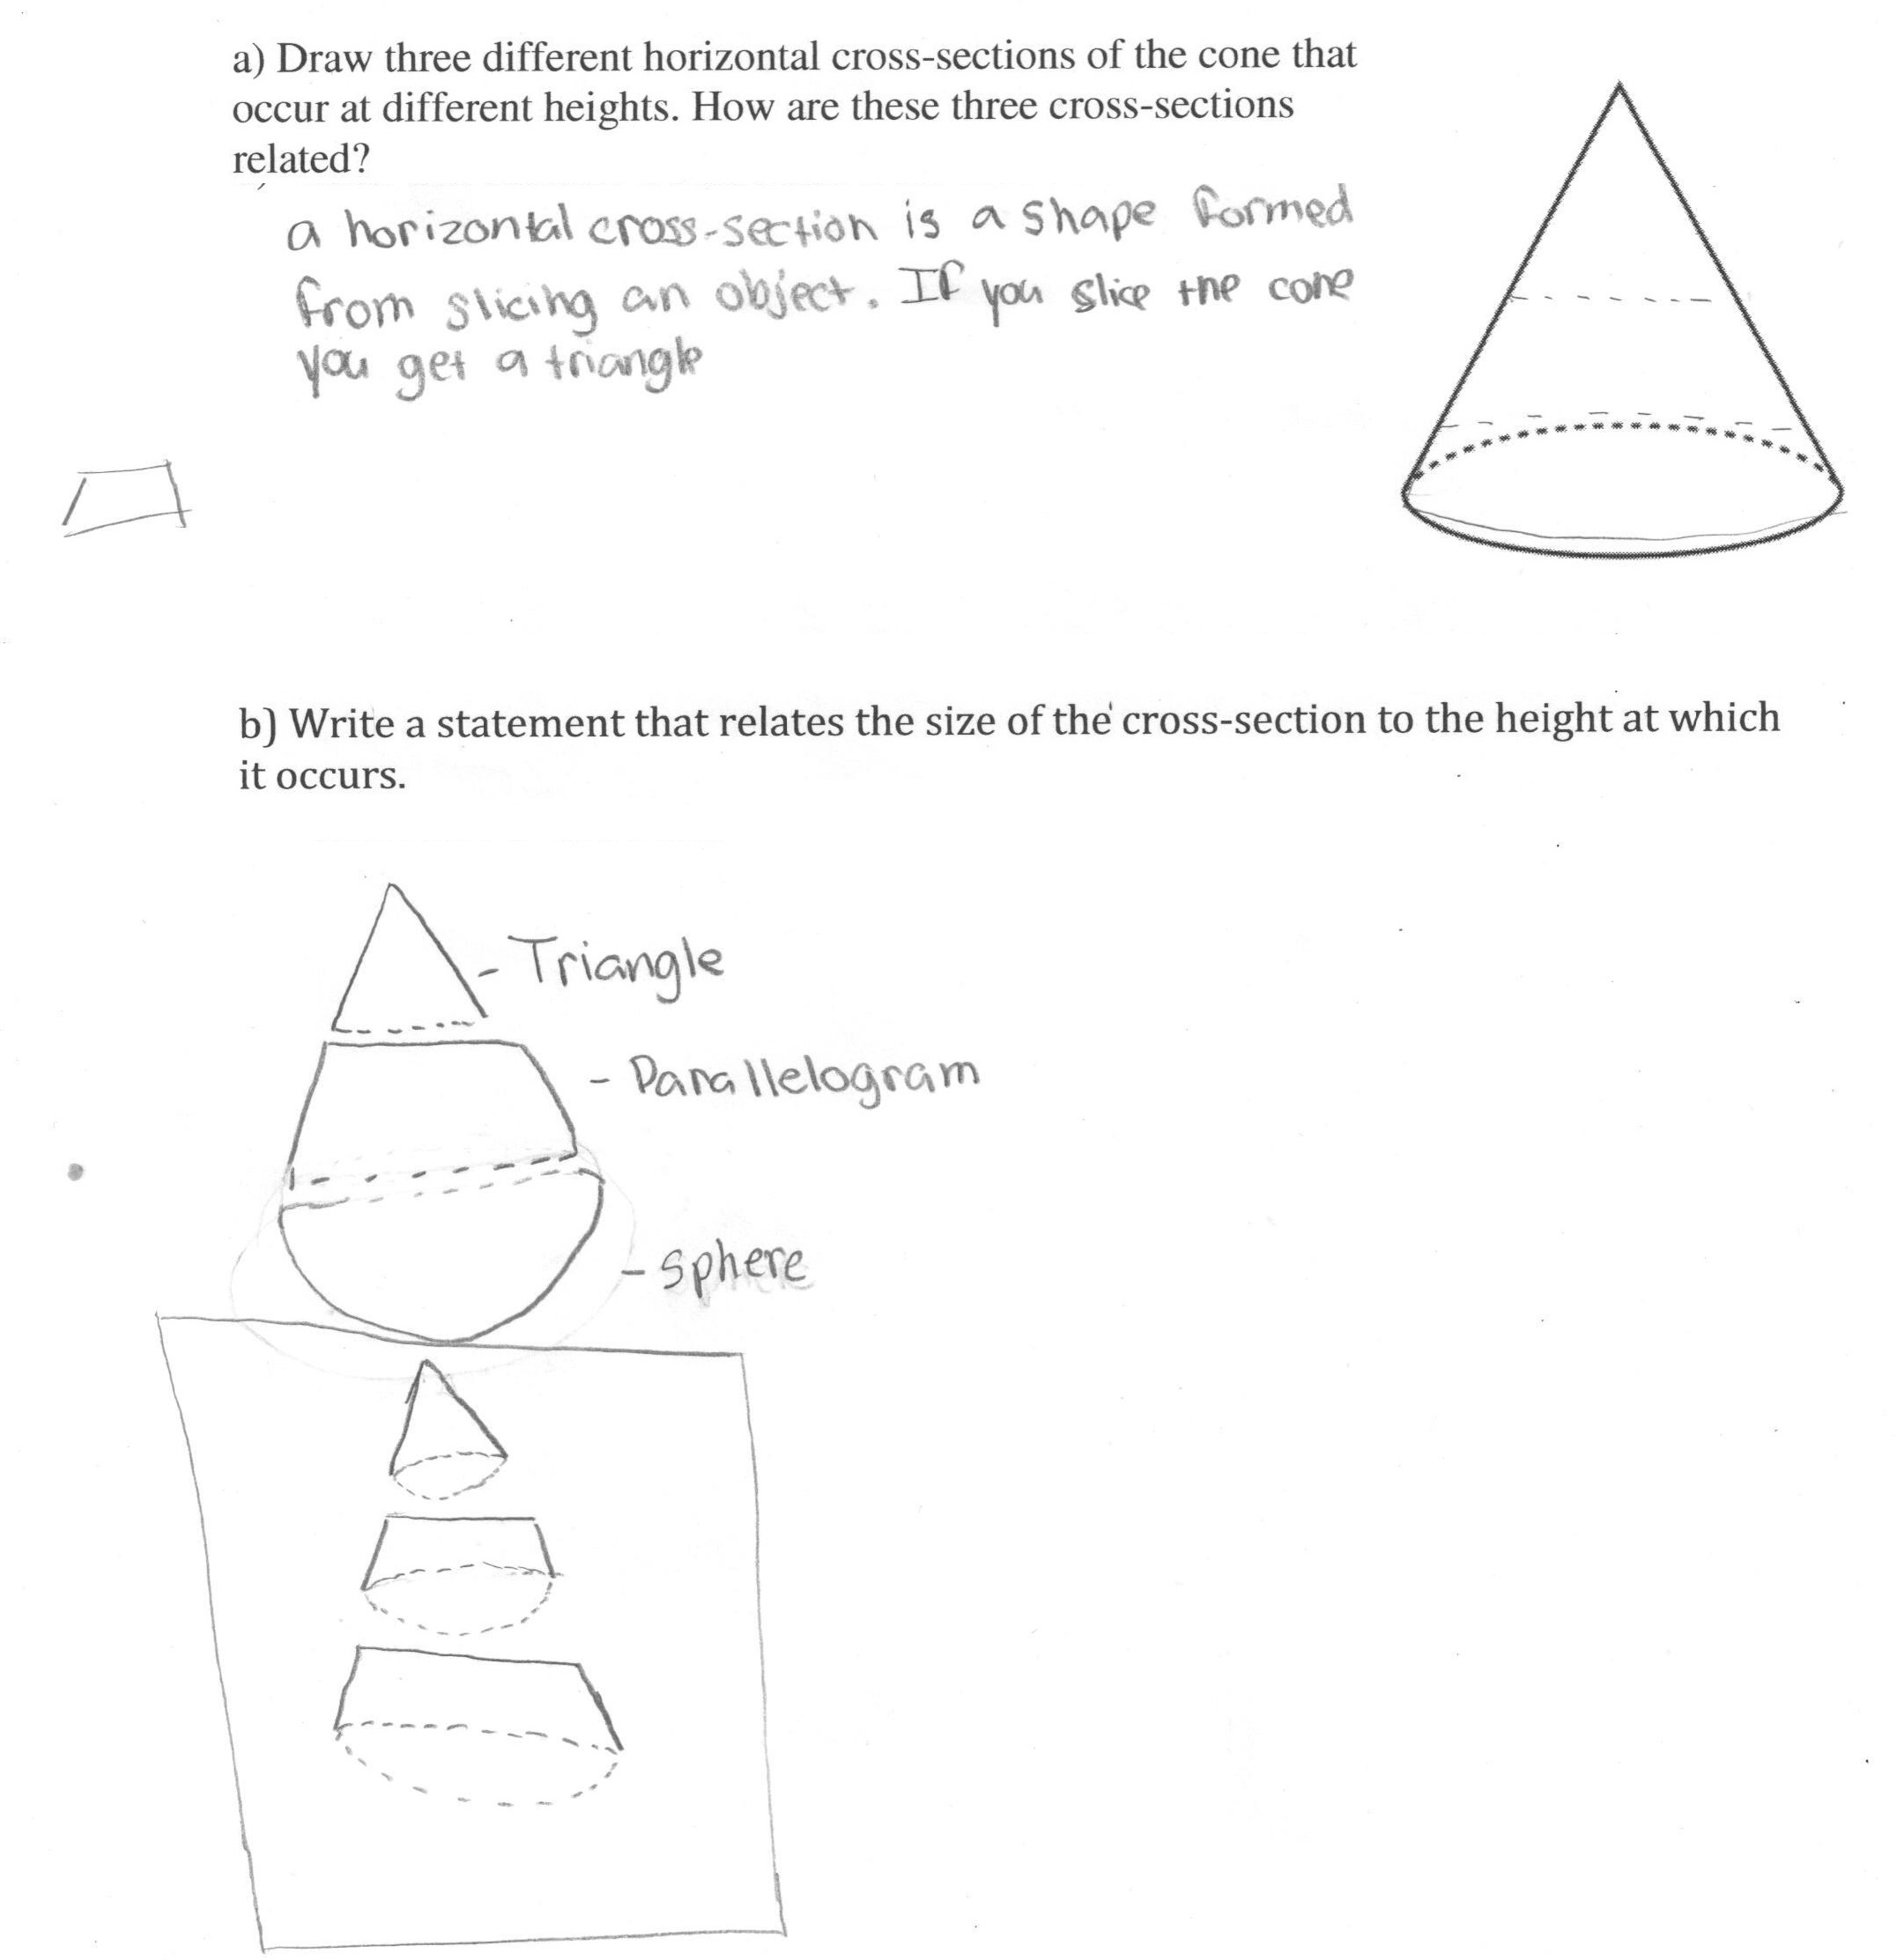 a) Draw three different horizontal cross-sections of the cone that
occur at different heights. How are these three cross-sections
related?
a horizontal cross-section is a shape formed
from slicing an object. If you slice the cone
you get a triangle
b) Write a statement that relates the size of the cross-section to the height at which
it occurs.
- Triangle
- Parallelogram
- sphere